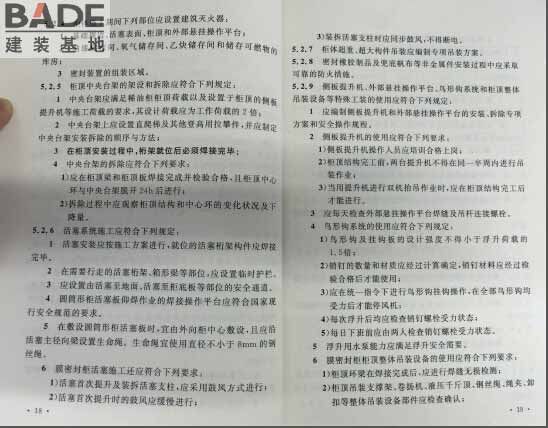 BADE
建装基地
5.2.4 期间下列部位应设置建筑灭火器:
活塞表面、柜顶和外部悬挂操作平台;
氧气储存间、乙炔储存间和储存可燃物的
库房;
3 密封装置的组装区域。
5.2.5 柜顶中央台架的架设和拆除应符合下列规定:
1 中央台架应满足稀油柜柜顶荷载以及设置于柜顶的侧板
提升机等施工荷载的要求,其设计荷载应为工作荷载的2倍;
2 中央台架上应设置直爬梯及其他登高用拉攀杆,并应制定
中央台架安装拆除的顺序与方法;
3 在柜顶安装过程中,桁架就位后必须焊接完毕;
4 中央台架的拆除应符合下列要求:
1)应在柜顶梁和柜顶板焊接完成并检验合格,且柜顶中心
环与中央台架脱开24h后进行;
2)拆除过程中应观察柜顶结构和中心环的变化状况及下
降量。
5.2.6 活塞系统施工应符合下列规定:
1 活塞安装应按施工方案进行,就位的活塞桁架构件应焊接
完毕。
2 在需要行走的活塞桁架、箱形梁等部位,应设置临时护栏。
3 应设置由活塞至地面、活塞至柜底板等部位的安全通道。
4 圆筒形柜活塞板仰焊作业的焊接操作平台应符合国家现
行安全规范的要求。
5 在敷设圆筒形柜活塞板时,宜由外向柜中心敷设,且应沿
活塞主径向梁设置生命绳。生命绳宜使用直径不小于8mm的钢
丝绳。
6 膜密封柜活塞施工还应符合下列要求:
1)活塞首次提升及装拆活塞支柱,应采用鼓风方式进行;
2)活塞首次提升时的鼓风应缓慢进行;
· 18 ·
3)装拆活塞支柱时应同步鼓风,不得断电。
5.2.7 柜体超重、超大构件吊装应编制专项吊装方案。
5.2.8 密封橡胶制品及兜底帆布等非金属件安装过程中应采取
可靠的防火措施。
5.2.9 侧板提升机、外部悬挂操作平台、鸟形钩系统和柜顶整体
吊装设备等特殊工装的使用应符合下列规定:
1 应编制侧板提升机和外部悬挂操作平台的安装、拆除专项
方案和安全操作规程。
2 侧板提升机的使用应符合下列要求:
1)侧板提升机操作人员应培训合格上岗;
2)柜顶结构完工前,两台提升机不得在同一半周内进行吊
装作业;
3)当用提升机进行双机抬吊作业时,应在柜顶结构完工后
才能进行。
3 应每天检查外部悬挂操作平台焊缝及吊杆连接螺栓。
4 鸟形钩系统的使用应符合下列要求:
1)鸟形钩及挂钩板的设计强度不得小于浮升荷载的
1.5倍;
2)销钉的数量和材质应经过计算确定,销钉材料应经过检
验合格后才能使用;
3)应在统一指令下进行鸟形钩挂钩操作,在全部鸟形钩均
受力后才能停风机;
4)每次浮升后均应检查销钉螺栓受力状态;
5)每日下班前应由两人检查销钉螺栓受力状态。
5 浮升用水泵能力应满足升浮安全需要。
6 膜密封柜柜顶整体吊装设备的使用应符合下列要求:
1)柜顶环梁在焊接完成后,应进行焊缝无损检测;
2)柜顶吊装支撑架、卷扬机、液压千斤顶、钢丝绳、绳夹、卸
扣等整体吊装设备部件应检查确认;
· 19 ·